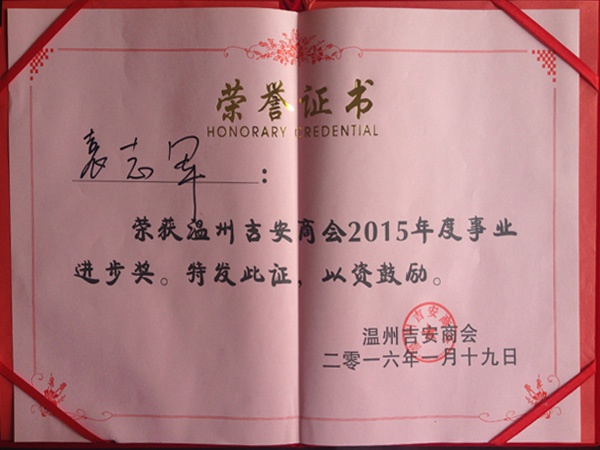 荣誉证书
HONORARY CREDENTIAL
袁志军：
荣获温州吉安商会2015年度事业
进步奖。特发此证，以资鼓励。
温州吉安商会
二零一六年一月十九日